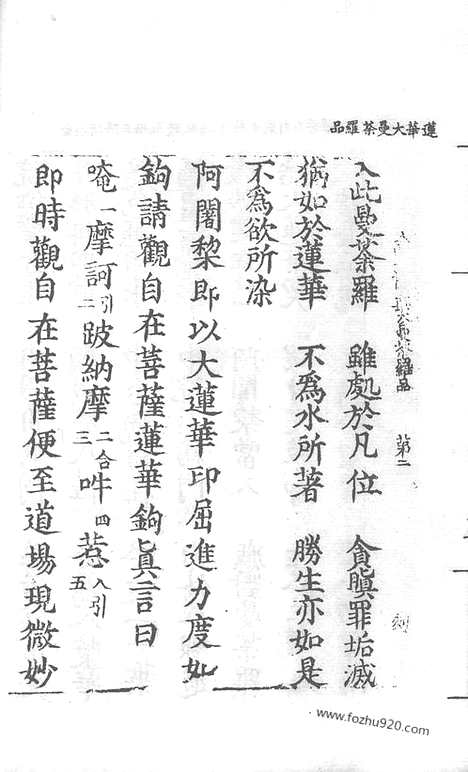 蓮華大曼荼羅品
第二
入此曼荼羅　雖處於凡位　貪瞋罪垢滅
猶如於蓮華　不為水所著　勝生亦如是
不為欲所染
阿闍梨即以大蓮華印屈進力度如
鉤請觀自在菩薩蓮華鉤真言曰
唵一摩訶引二跛納摩二合三吽四惹入引五
即時觀自在菩薩便至道場現微妙
www.fozhu920.com